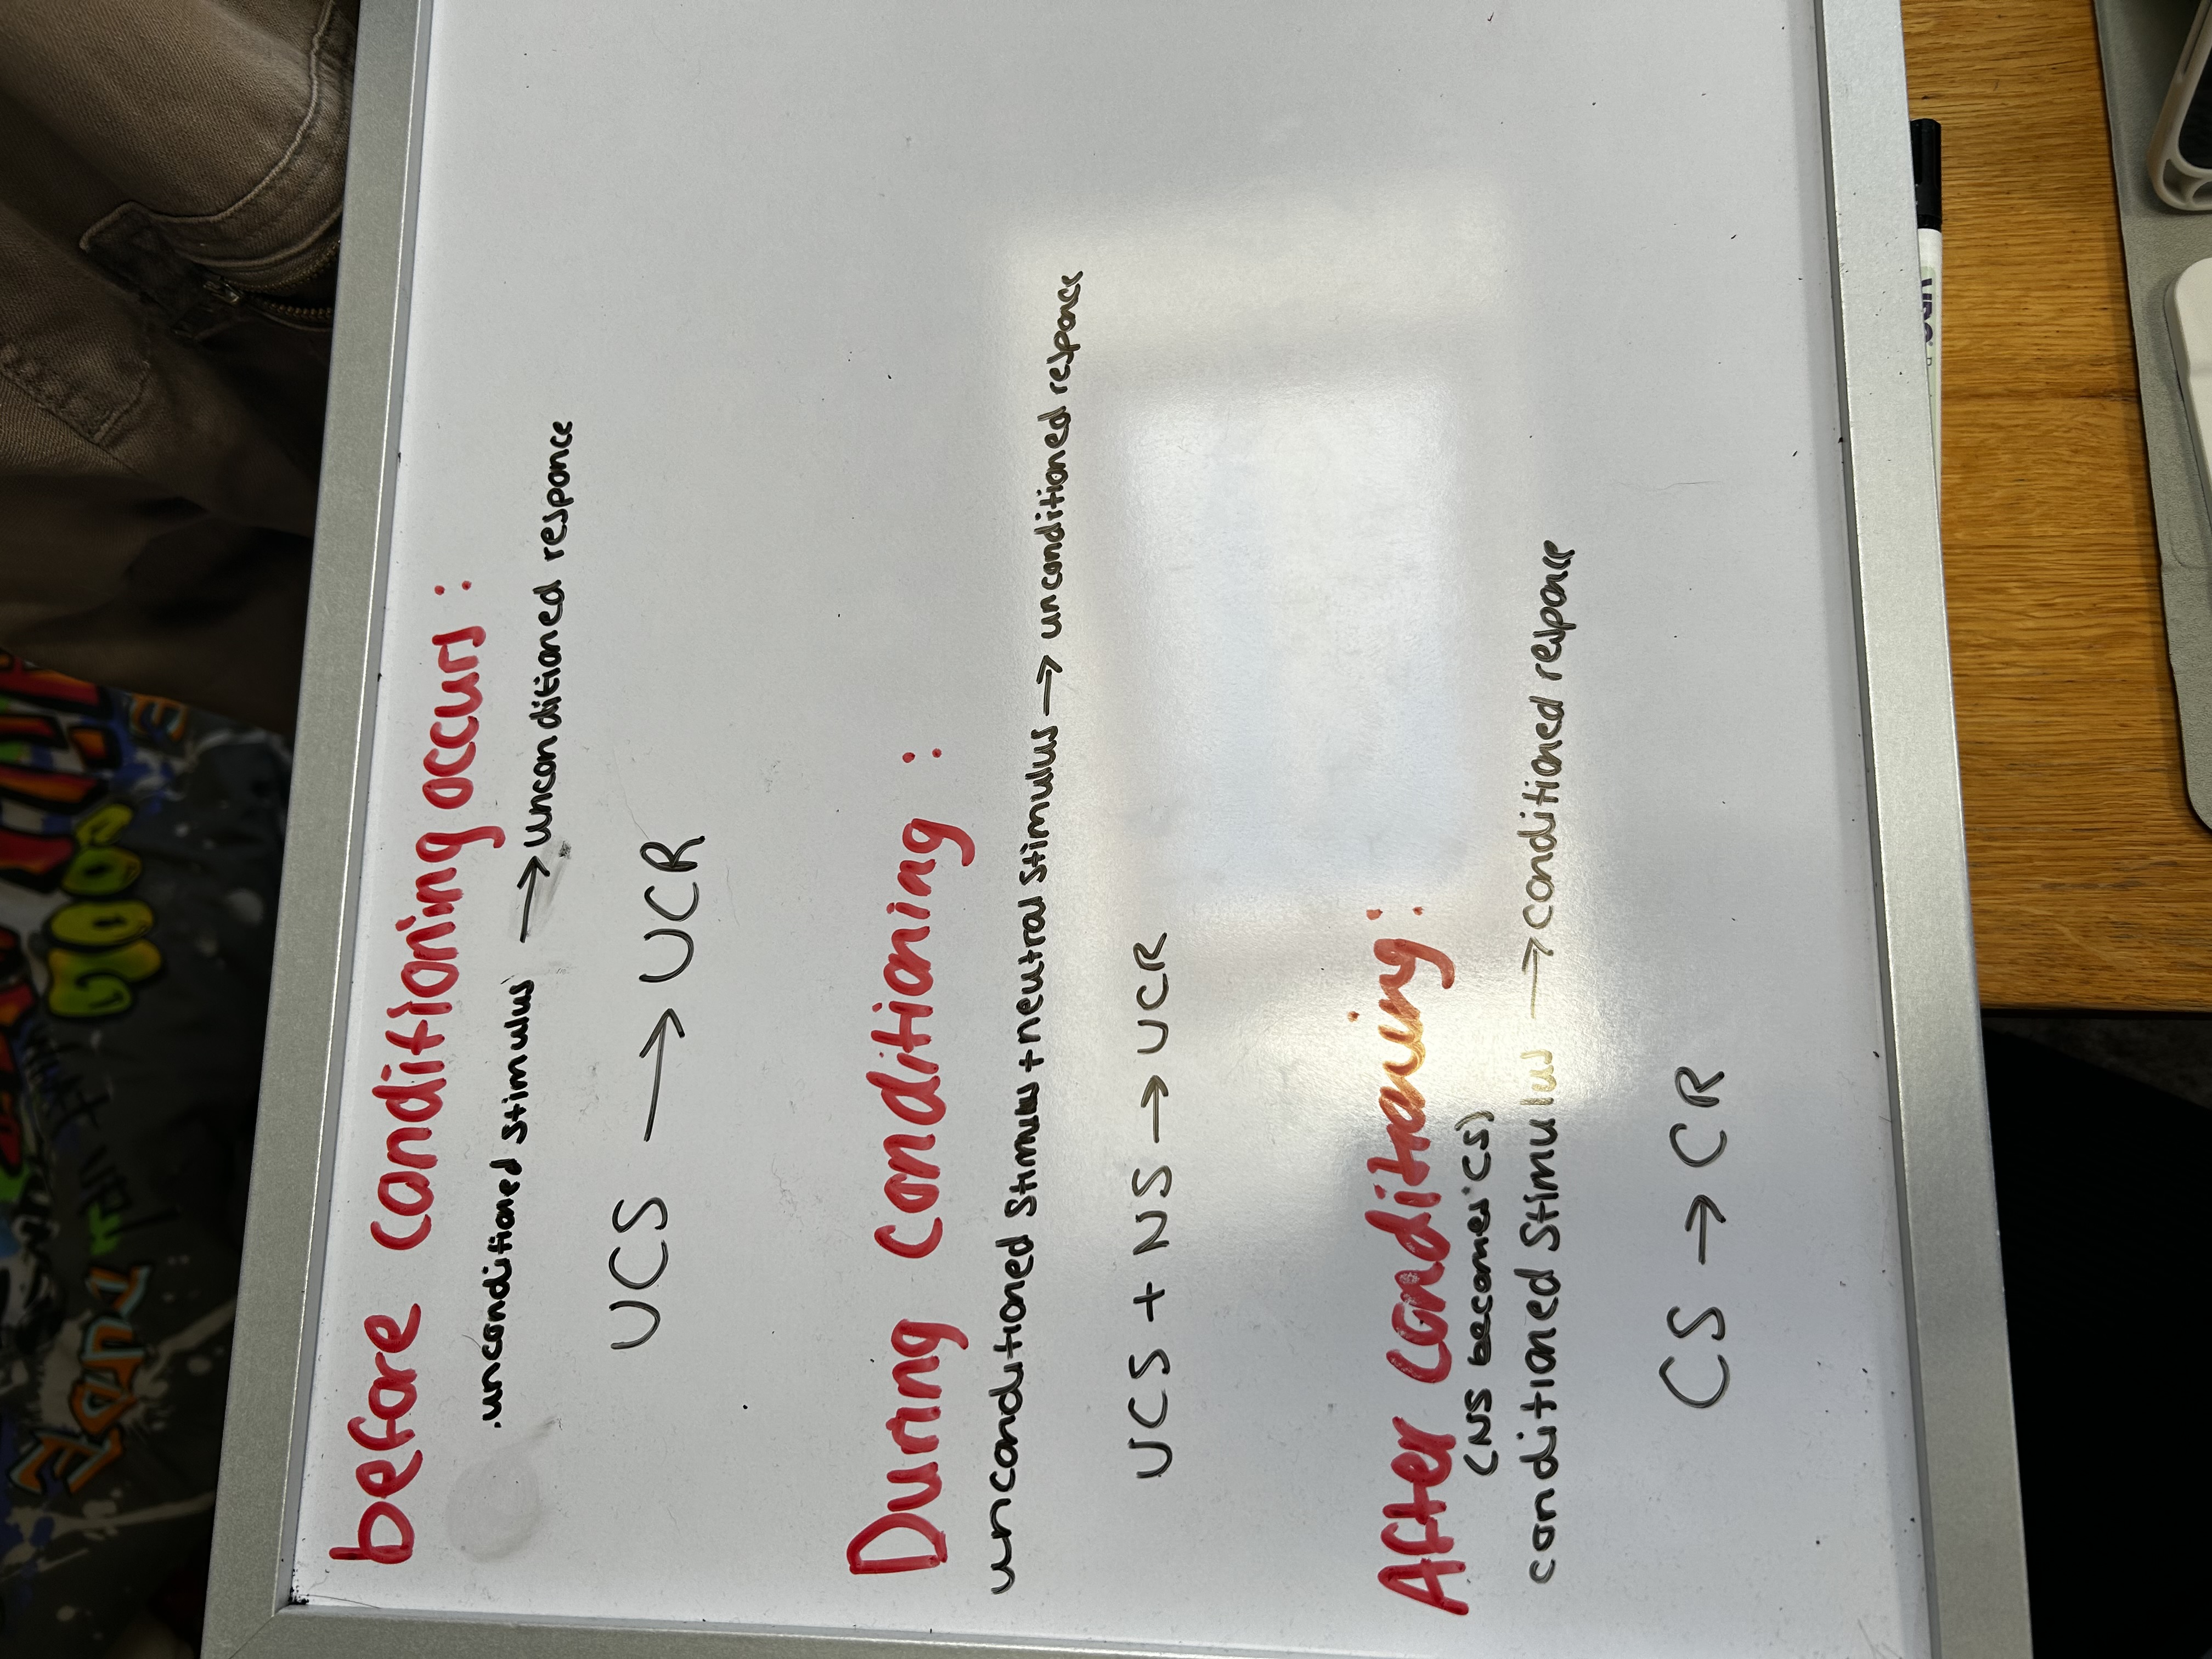 before conditioning occurs :
.unconditioned stimulus → unconditioned responce
UCS → UCR
During conditioning :
unconditioned stimulus + neutral stimulus → unconditioned responce
UCS + NS → UCR
After conditioning :
(NS becomes CS)
conditioned stimulus → conditioned responce
CS → CR